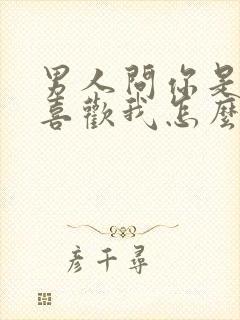 男人問你是
喜歡我怎麼
彥千尋